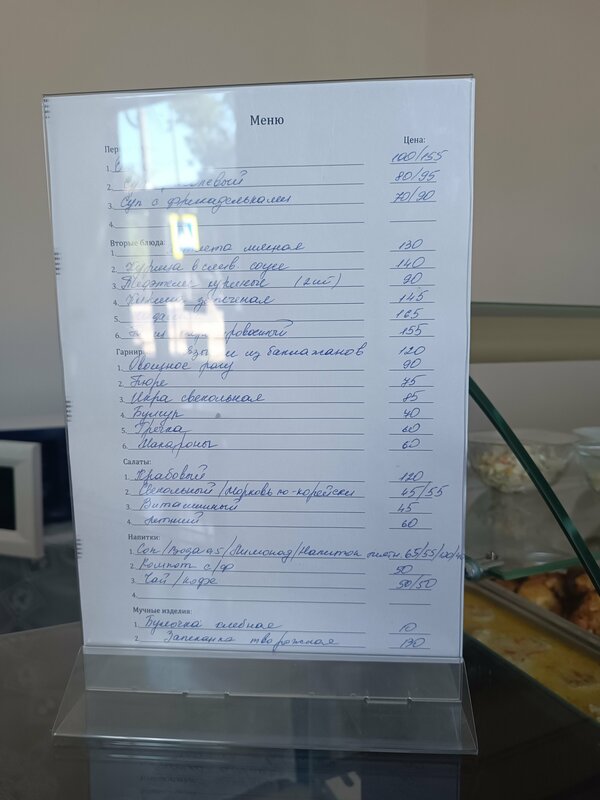 Меню
Цена:
1. 100/155
2. 80/95
3. Суп с фрикадельками 70/90
4.
Вторые блюда:
1. мясная 130
2. Курица в слив. соусе 140
3. куриные (2шт) 90
4. 145
5. 165
6. 155
Гарнир из баклажанов 120
1. Овощное рагу 90
2. Пюре 75
3. Икра свекольная 85
4. Булгур 40
5. Гречка 60
6. Макароны 60
Салаты:
1. Крабовый 120
2. Свекольный/Морковь по-корейски 45/55
3. Витаминный 45
4. Летний 60
Напитки:
1. Сок/Вода 0,5/Лимонад/Напиток 65/55/100/
2. Компот с/ф 50
3. Чай/кофе 50/50
4.
Мучные изделия:
1. Булочка хлебная 10
2. Запеканка творожная 130